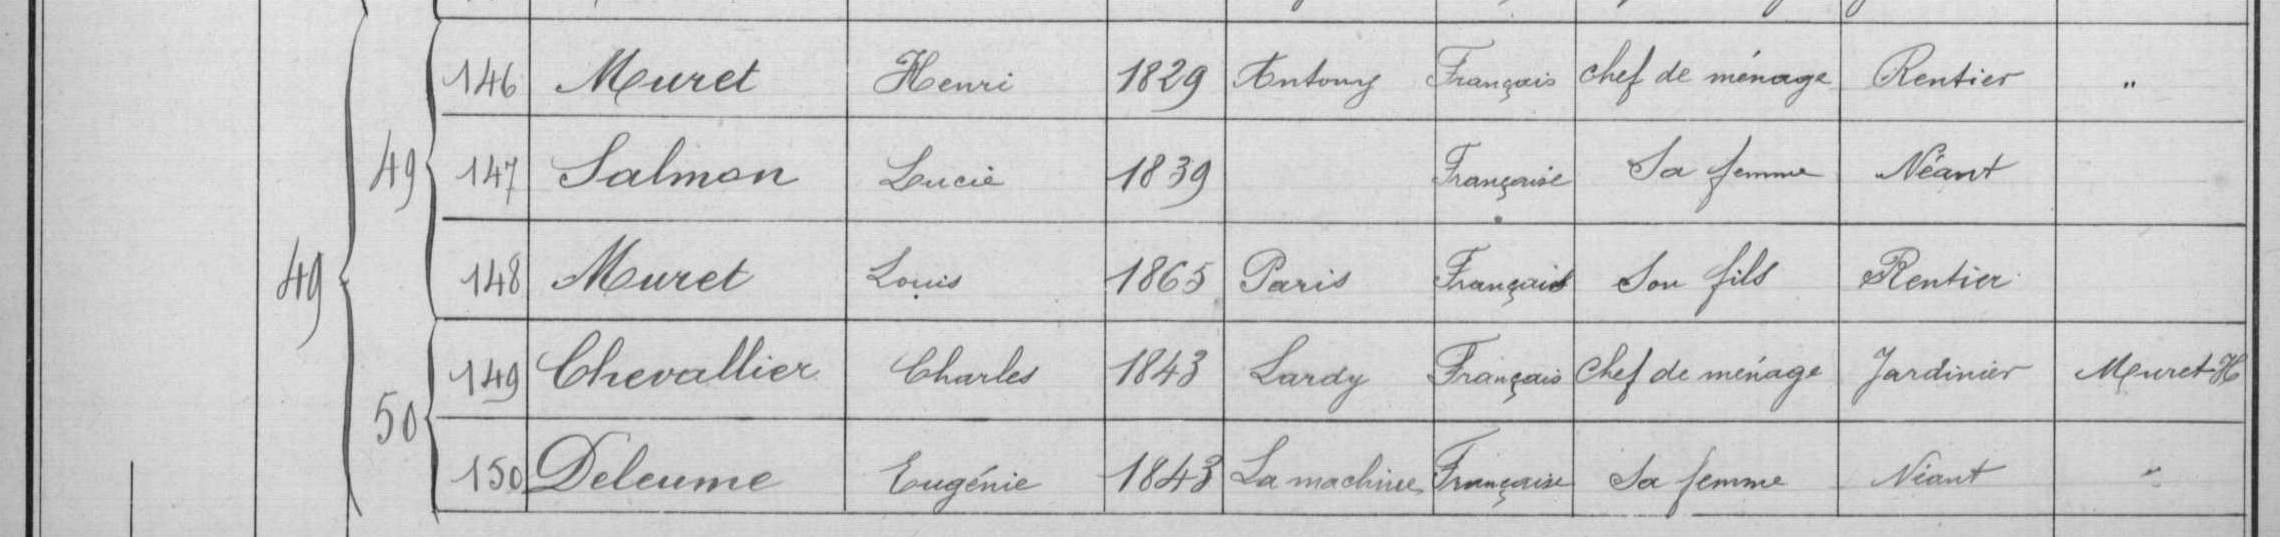 146 Muret Henri 1829 Antony Français chef de ménage Rentier "
49 147 Salmon Lucie 1839 Française Sa femme Néant
49 148 Muret Louis 1865 Paris Français Son fils Rentier
149 Chevallier Charles 1843 Lardy Français Chef de ménage Jardinier Muret H
50 150 Deleume Eugénie 1843 La machine Française Sa femme Néant "